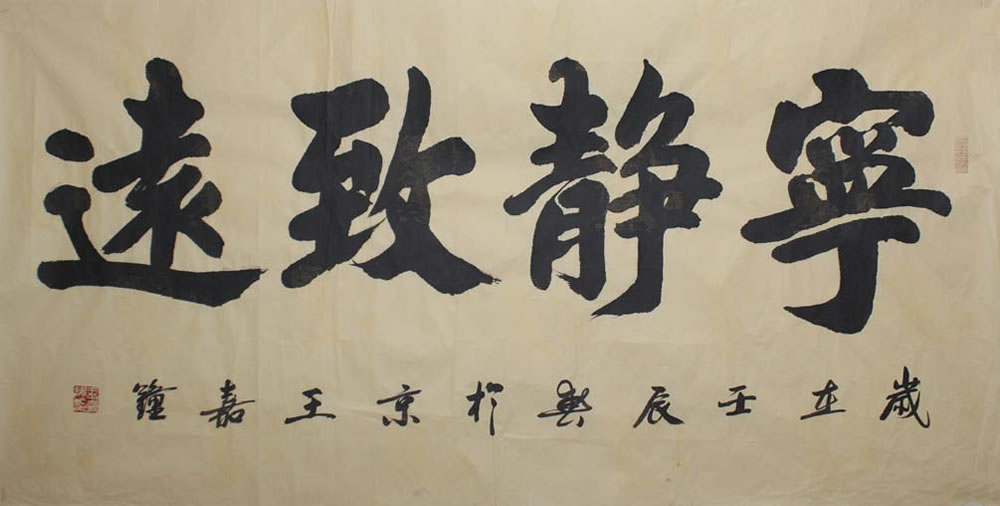 寧静致遠
歲在壬辰於京王嘉鐘